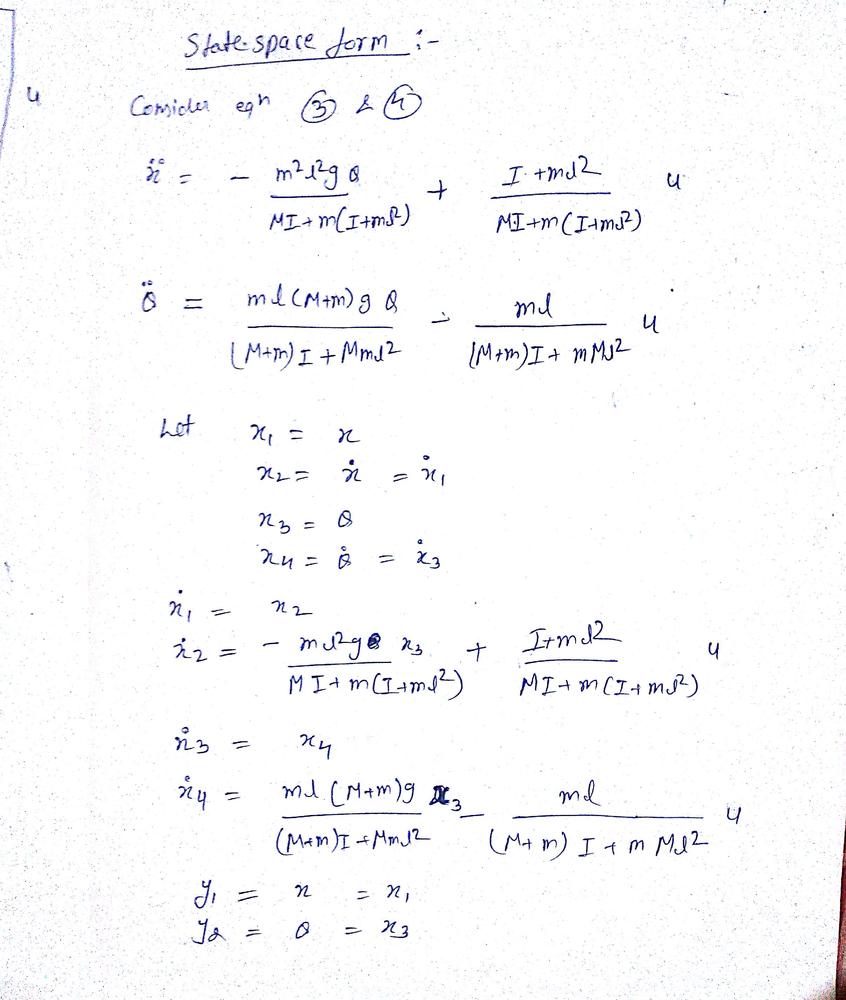 State-space form :-
u
Consider eqn ③ & ④
ẍ = - m²l²gθ / MI+m(I+ml²) + I+ml² / MI+m(I+ml²) u
θ̈ = ml(M+m)gθ / (M+m)I+Mml² - ml / (M+m)I+mMl² u
Let x₁ = x
x₂ = ẋ = ẋ₁
x₃ = θ
x₄ = θ̇ = ẋ₃
ẋ₁ = x₂
ẋ₂ = - ml²g x₃ / MI+m(I+ml²) + I+ml² / MI+m(I+ml²) u
ẋ₃ = x₄
ẋ₄ = ml(M+m)g x₃ / (M+m)I+Mml² - ml / (M+m)I+mMl² u
y₁ = x = x₁
y₂ = θ = x₃